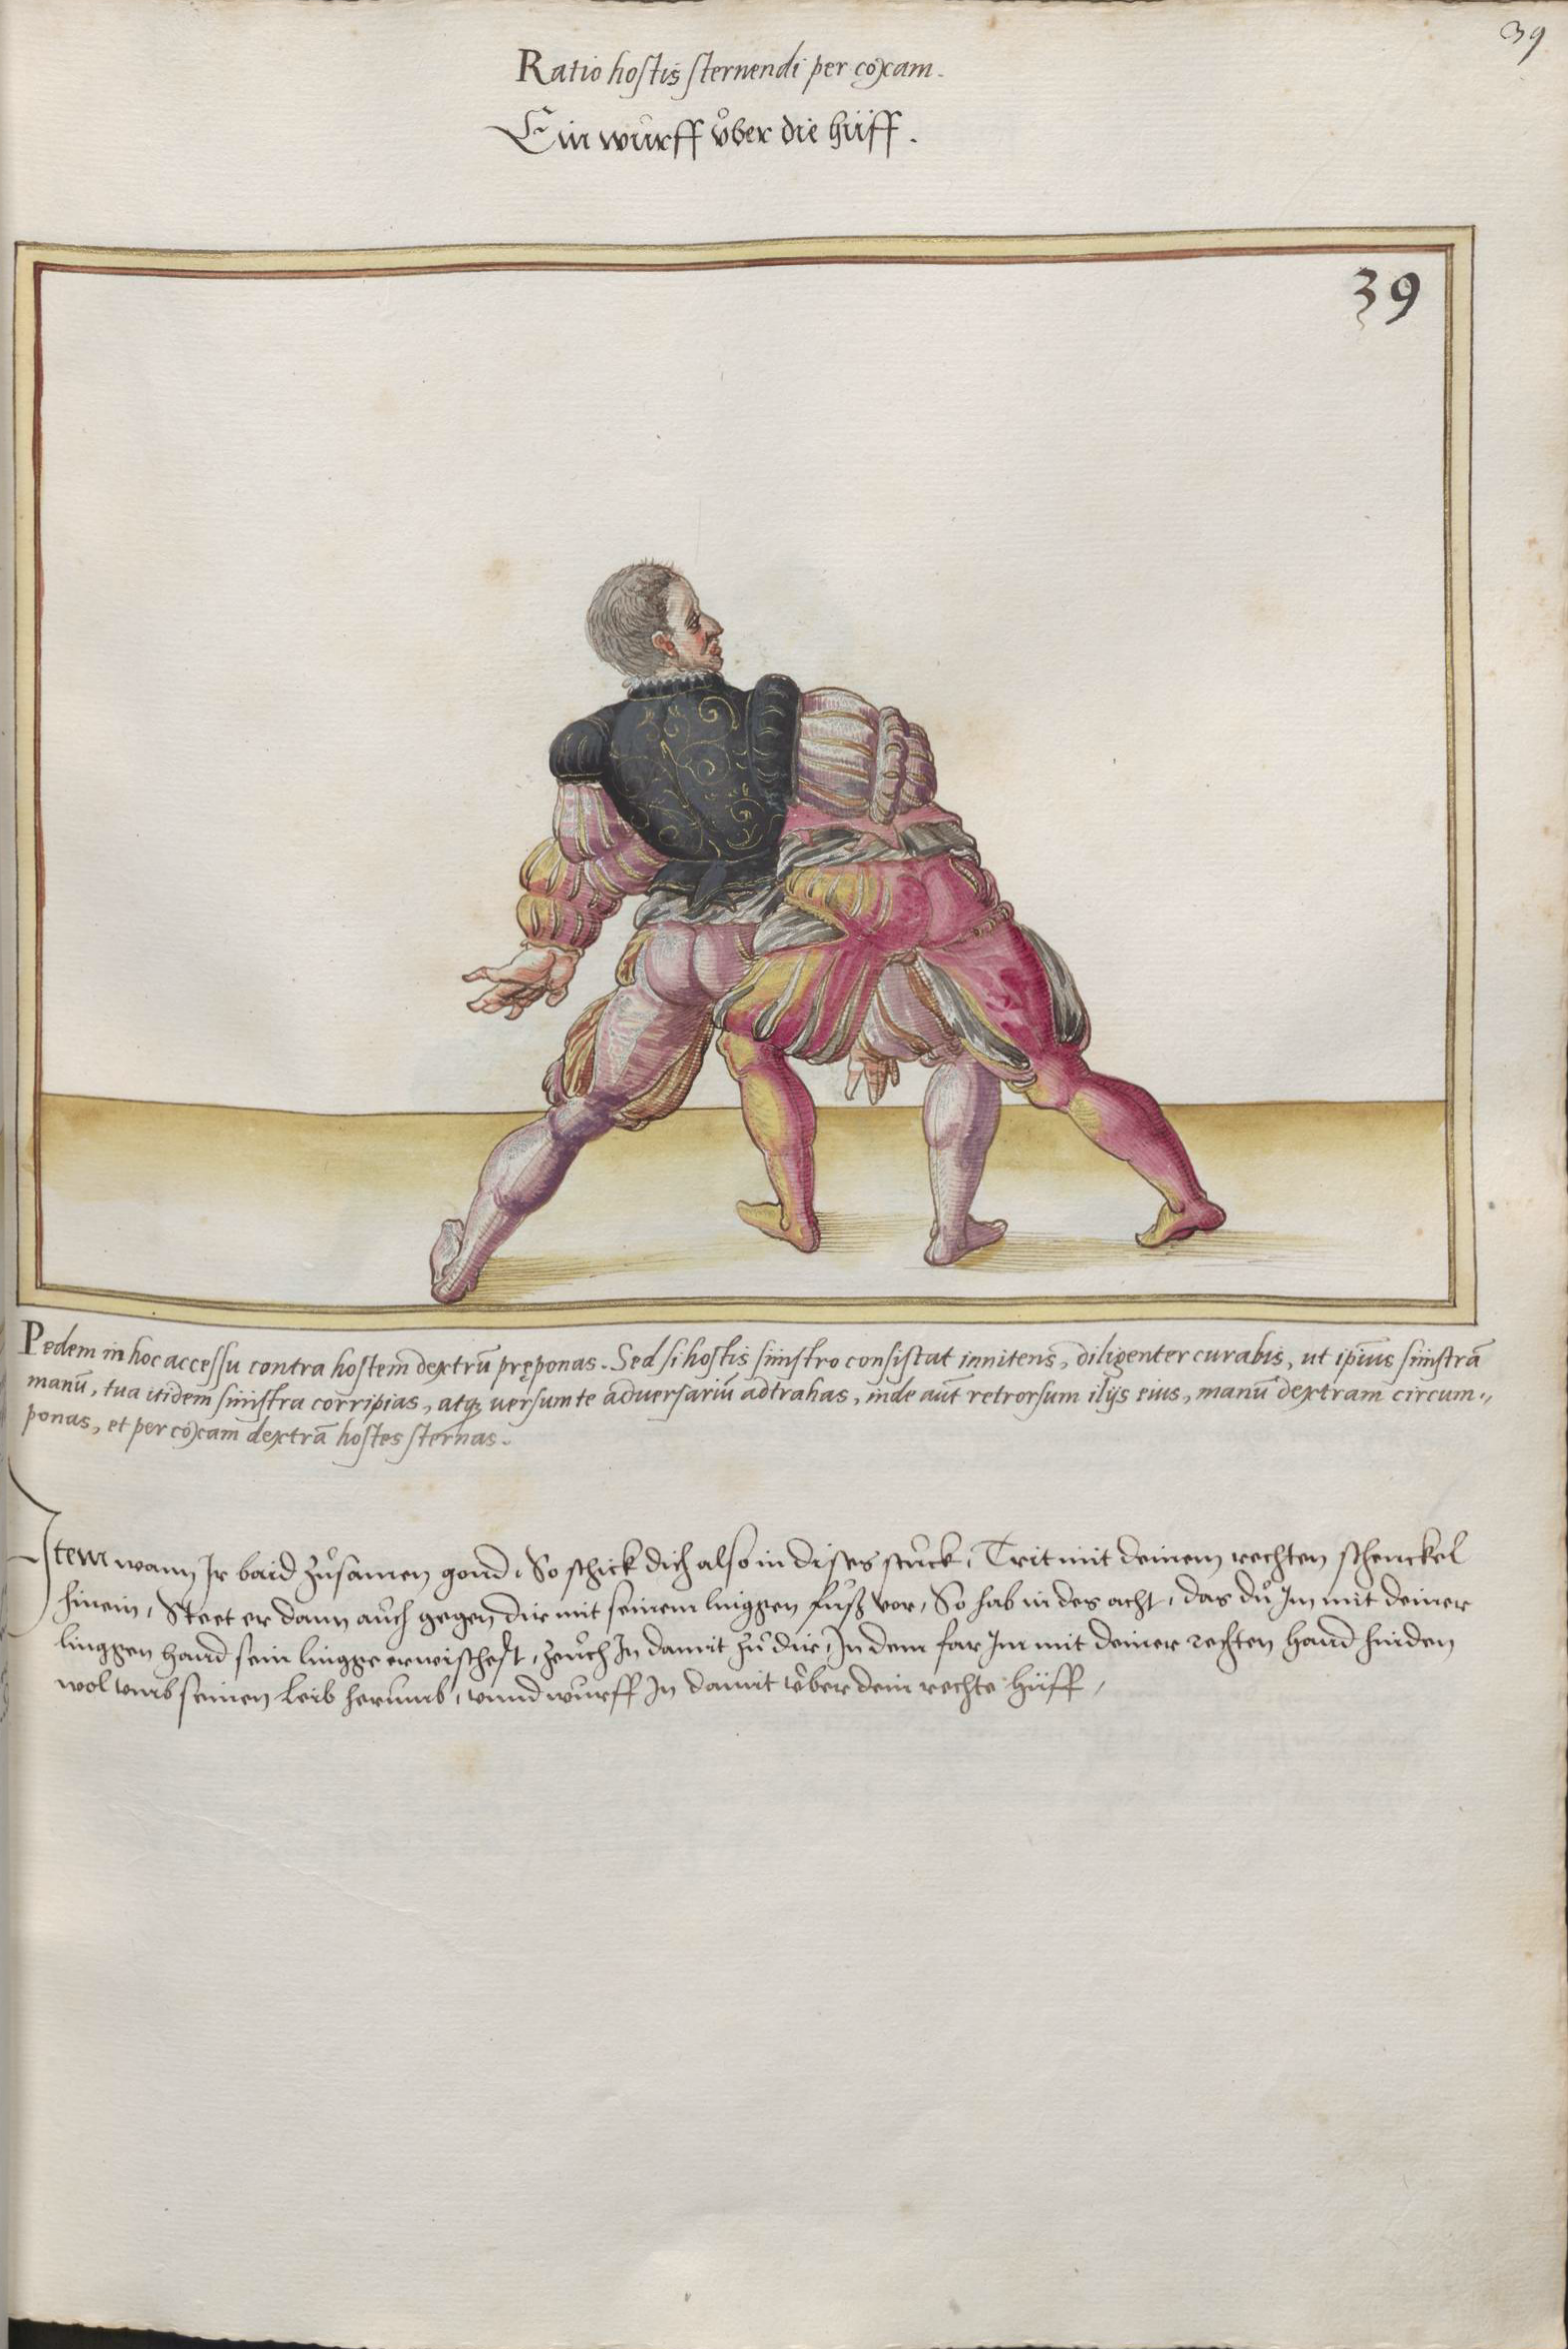 39
Ratio hostis sternendi per coxam.
Ein wurff vͦber die hüff.
39
Pedem in hoc accessu contra hostem dextrū pręponas. Sed si hostis sinistro consistat innitens, diligenter curabis, ut ipsius sinistrā
manū, tua itidem sinistra corripias, atq; versum te adversariū adtrahas, inde aūt retrorsum ilijs eius, manū dextram circum„
ponas, et per coxam dextrā hostes sternas.
Item wann Ir baid zuͦsamen gond, So schick dich also in dises stuck, Trit mit deinem rechten schenckel
hinein, Steet er dann auch gegen dir mit seinem linggen fuͦß vor, So hab in des acht, das duͦ Im mit deiner
linggen hand sein lingge erwischest, zeuch In damit zuͦ dir, In dem far Im mit deiner rechten hand hinden
wol vmb seinen leib herumb, vnnd wurff In damit vͦber dein rechte hüff,